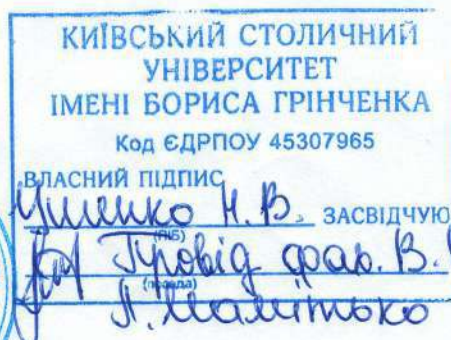 КИЇВСЬКИЙ СТОЛИЧНИЙ
УНІВЕРСИТЕТ
ІМЕНІ БОРИСА ГРІНЧЕНКА
Код ЄДРПОУ 45307965
ВЛАСНИЙ ПІДПИС
Н.В. ЗАСВІДЧУЮ
(ПІБ)
Провід фах. В.
(посада)
Л.